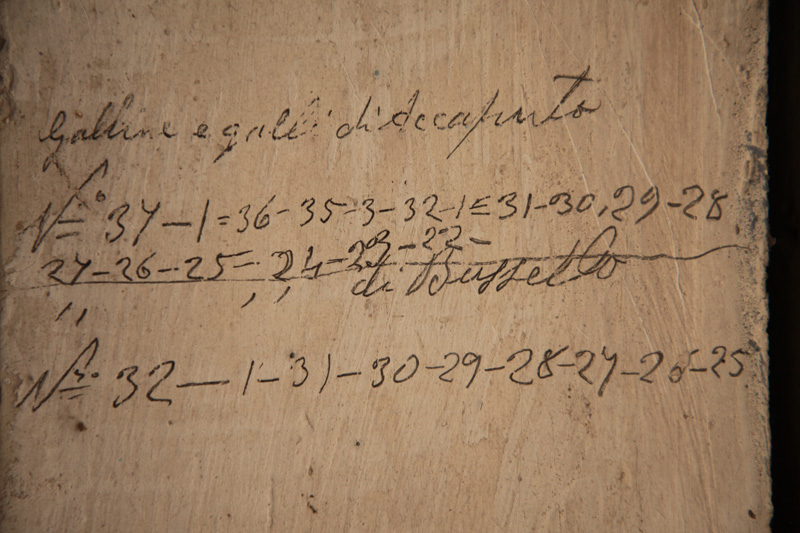 Galline e galli di decapinto
N.º 37 – 1 = 36 - 35 - 3 - 32 - 1 = 31 - 30, 29 - 28
27 - 26 - 25 - 24 - 23 - 22 -
,, ,, di Bussetto
N.º 32 — 1 - 31 - 30 - 29 - 28 - 27 - 26 - 25